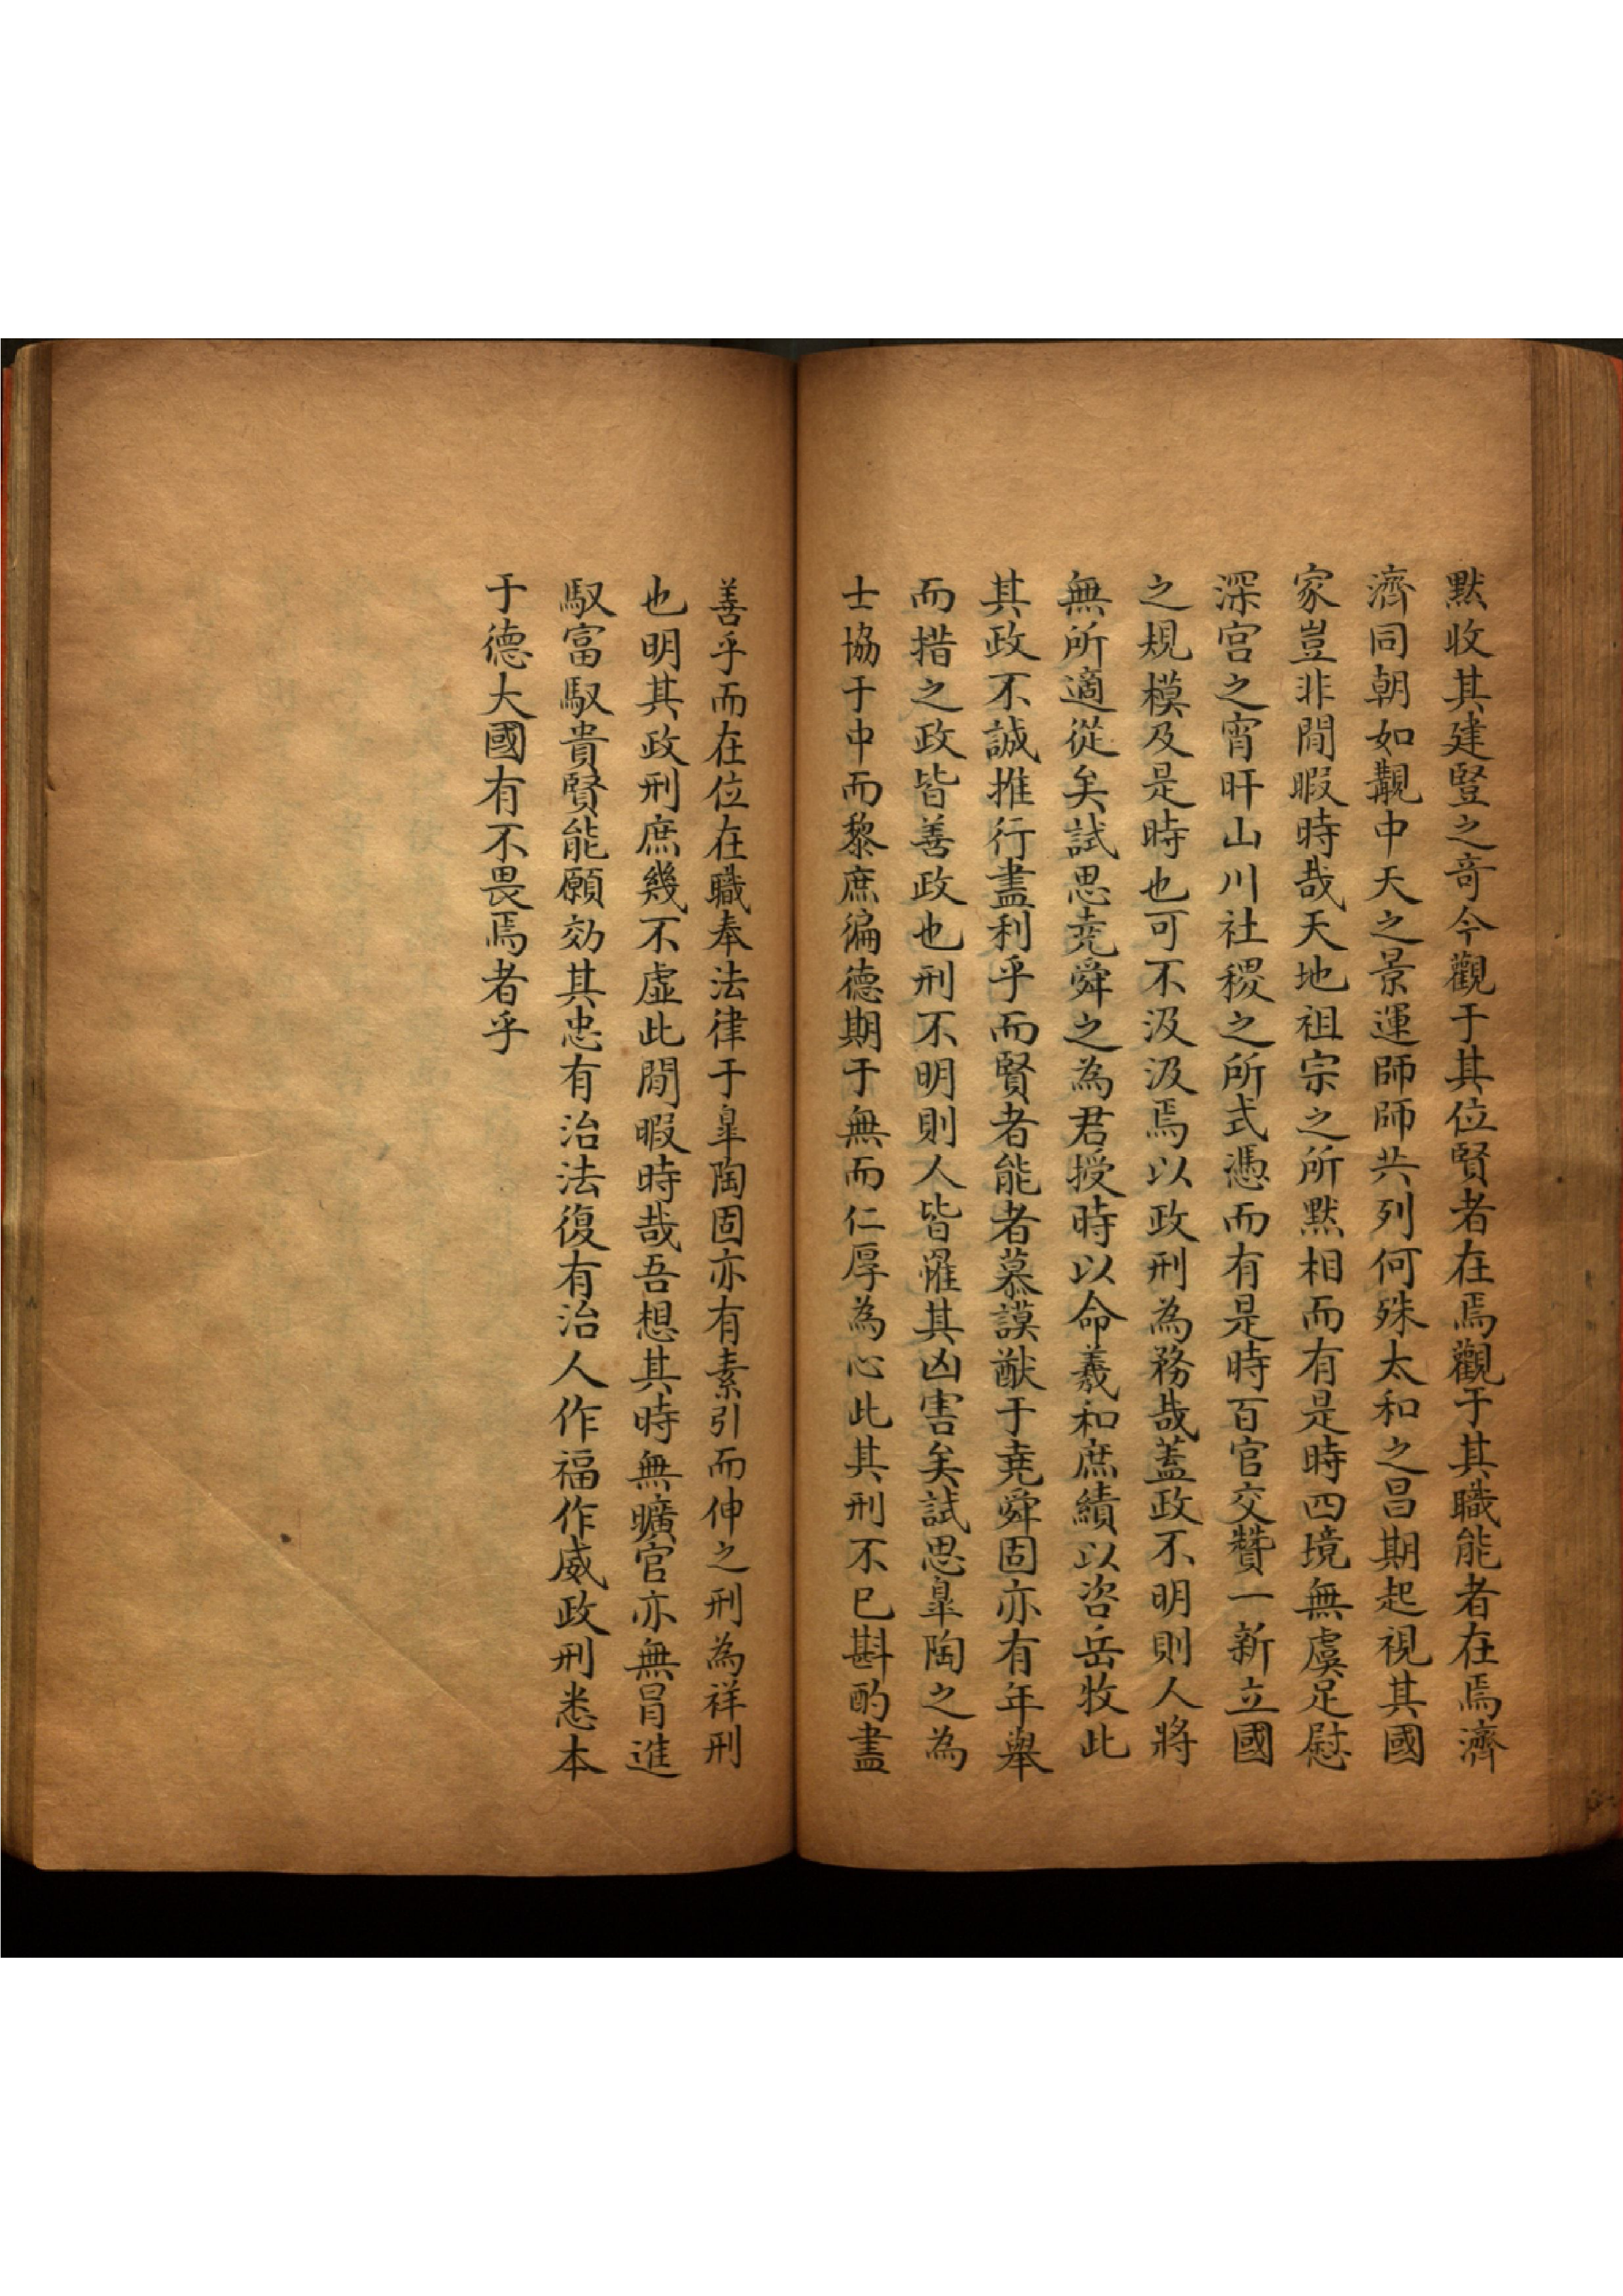 黙收其建豎之竒今觀于其位賢者在焉觀于其職能者在焉濟
濟同朝如覯中天之景運師師共列何殊太和之昌期起視其國
家豈非閒暇時哉天地祖宗之所黙相而有是時四境無虞足慰
深宮之宵旰山川社稷之所式憑而有是時百官交贊一新立國
之規模及是時也可不汲汲焉以政刑為務哉蓋政不明則人將
無所適從矣試思堯舜之為君授時以命羲和庶績以咨岳牧此
其政不誠推行盡利乎而賢者能者慕謨猷于堯舜固亦有年舉
而措之政皆善政也刑不明則人皆罹其凶害矣試思臯陶之為
士協于中而黎庶徧德期于無而仁厚為心此其刑不已斟酌盡
善乎而在位在職奉法律于臯陶固亦有素引而伸之刑為祥刑
也明其政刑庶幾不虛此閒暇時哉吾想其時無曠官亦無冒進
馭富馭貴賢能願効其忠有治法復有治人作福作威政刑悉本
于德大國有不畏焉者乎